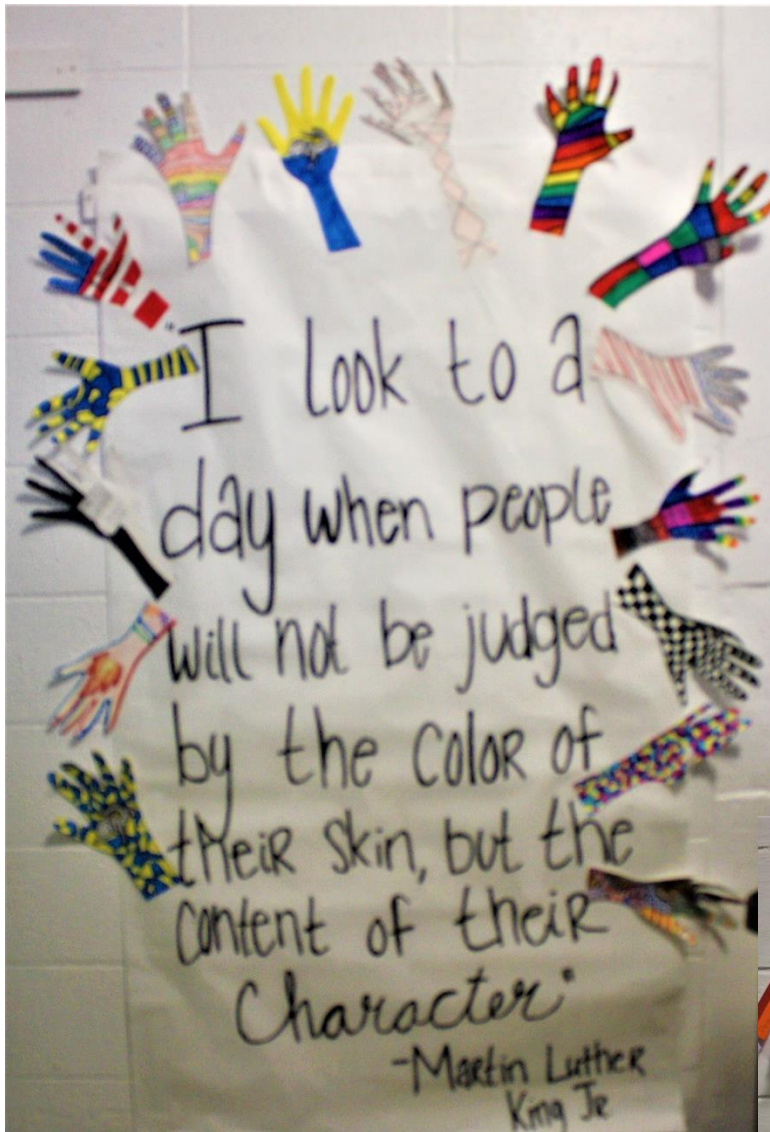 "I look to a
day when people
will not be judged
by the color of
their skin, but the
content of their
Character"
-Martin Luther
King Jr